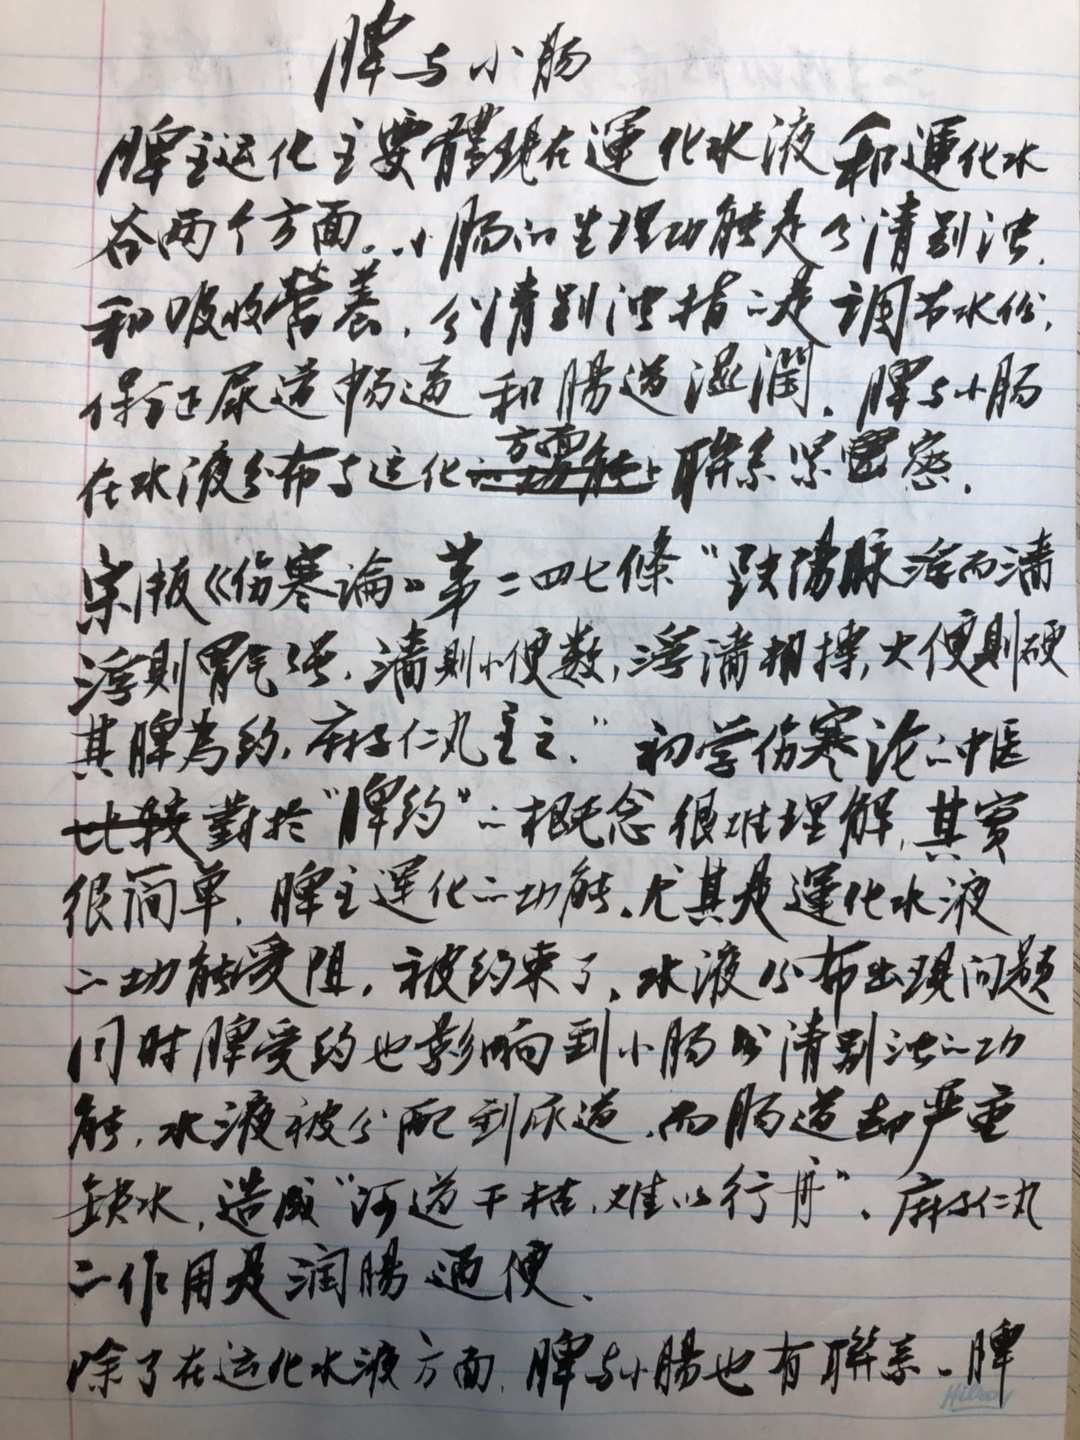 脾与小肠
脾主运化主要體現在運化水液和運化水
谷两个方面。小肠的生理功能是分清别浊,
和吸收营养,分清别浊指的是调节水份,
保证尿道畅通和腸道湿潤。脾与小肠
在水液分布与运化的方面联系紧密。
宋版《伤寒論》第二四七條“趺陽脉浮而濇
浮則胃氣强,濇則小便数,浮濇相搏,大便則硬
其脾為約,麻子仁丸主之。”初学伤寒论的中医
對於“脾约”的概念很难理解,其实
很简单,脾主運化的功能,尤其是運化水液
的功能受阻,被约束了,水液分布出現问题
同时脾受约也影响到小肠分清别浊的功
能,水液被分配到尿道,而肠道却严重
缺水,造成“河道干枯,难以行舟”。麻子仁丸
的作用是润腸通便。
除了在运化水液方面,脾与小腸也有联系。脾
Hilroy